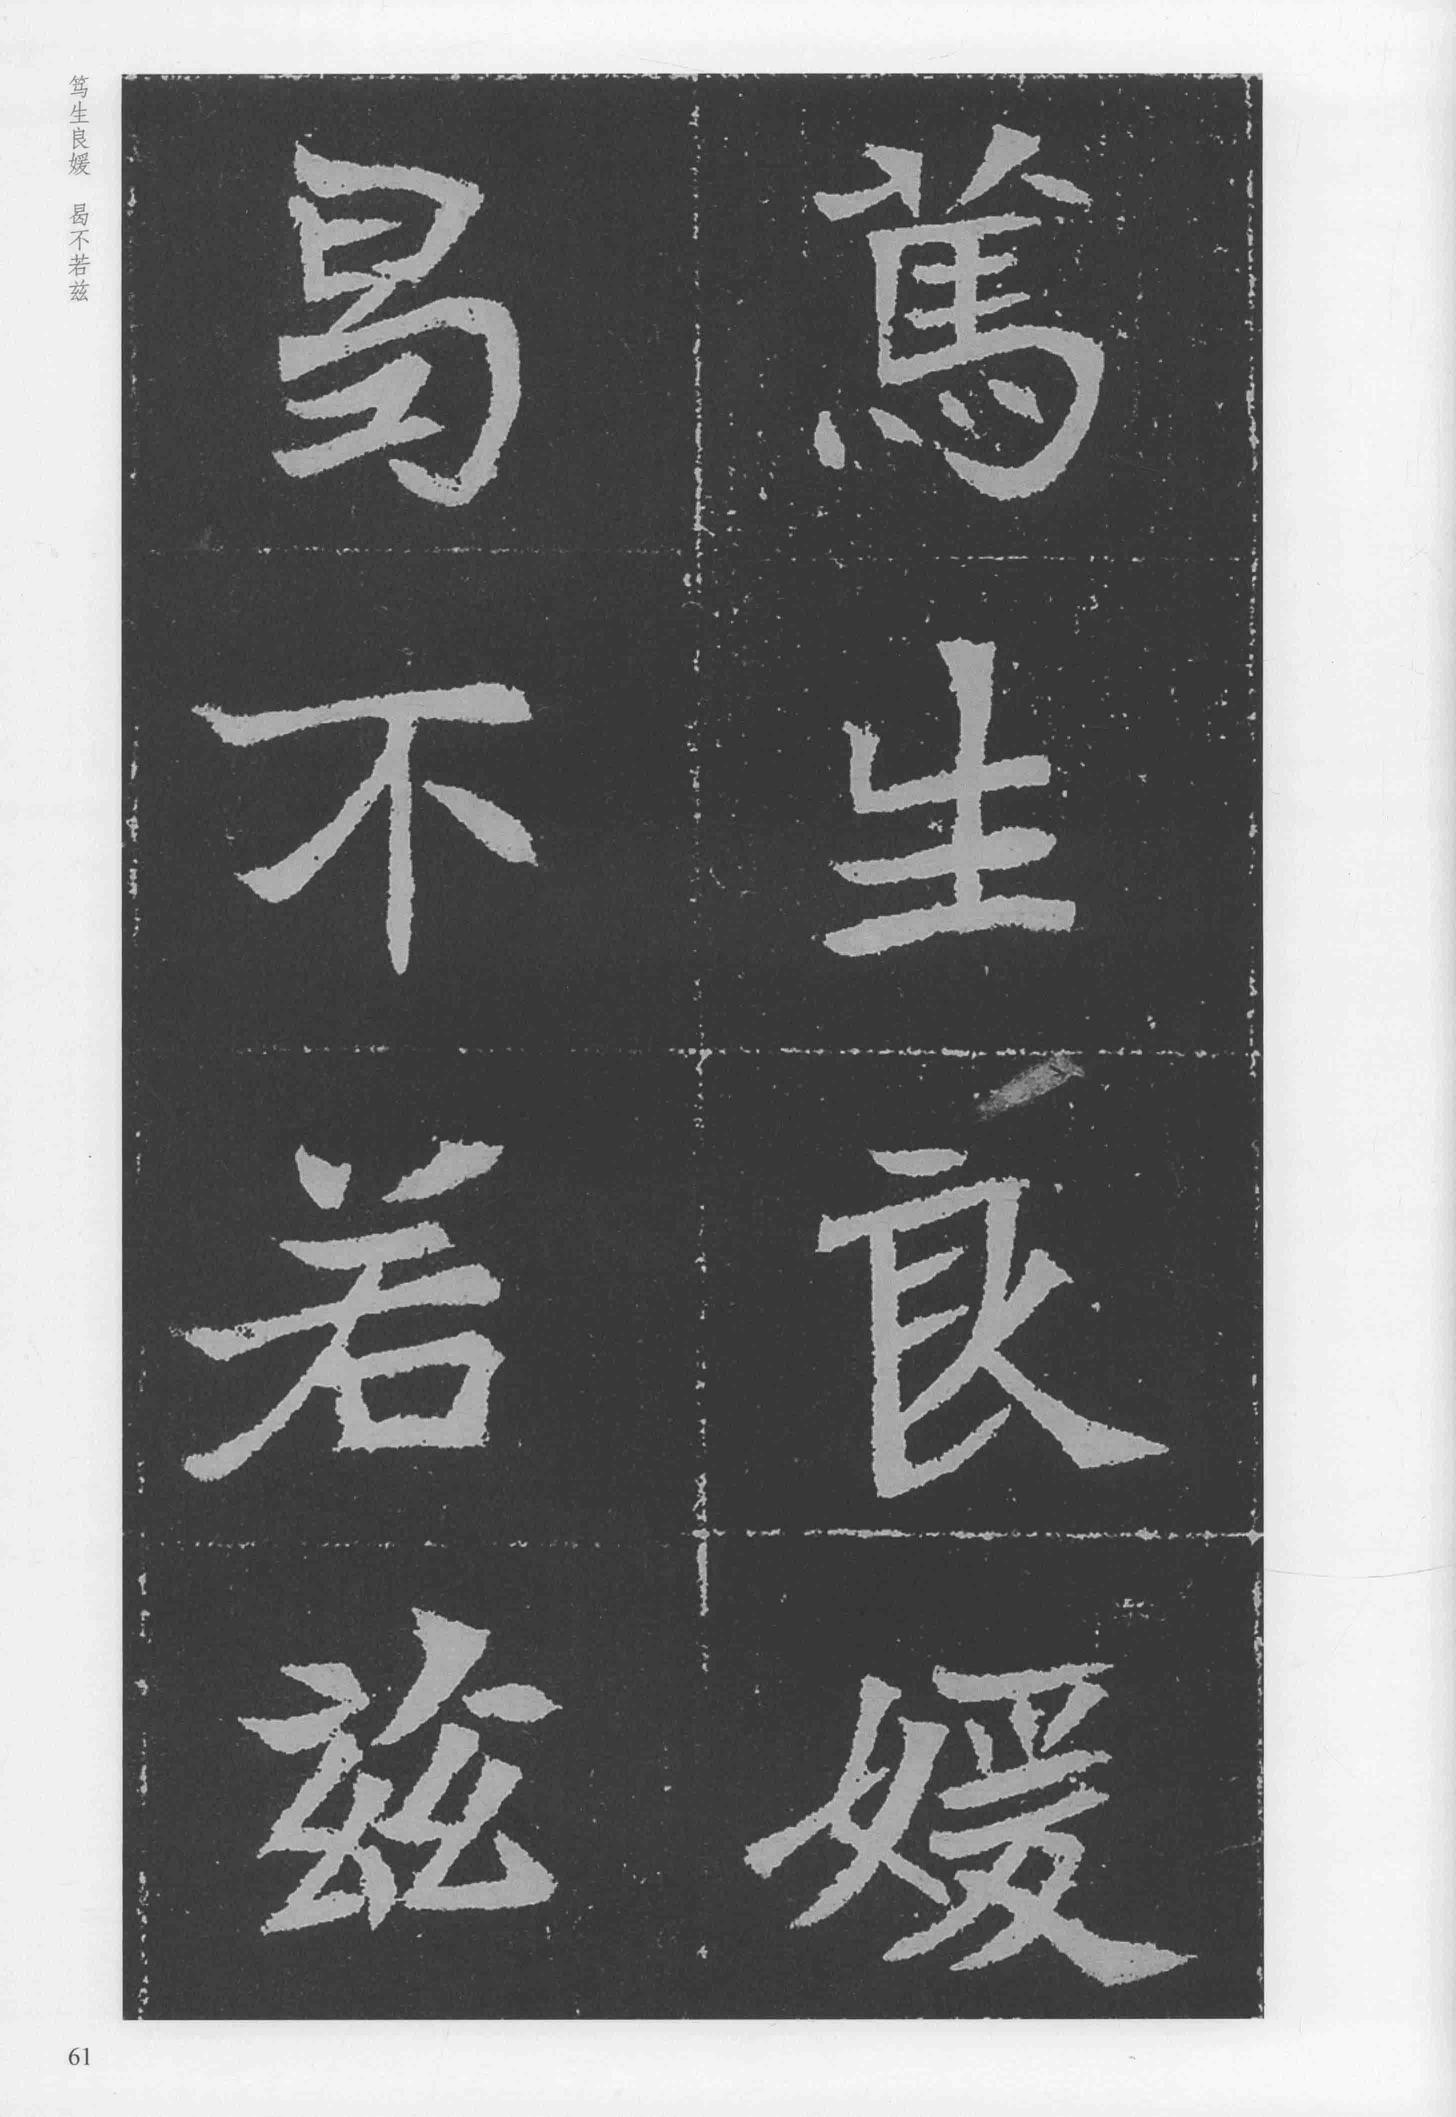 篤生良媛
曷不若兹
笃生良媛 曷不若兹
61